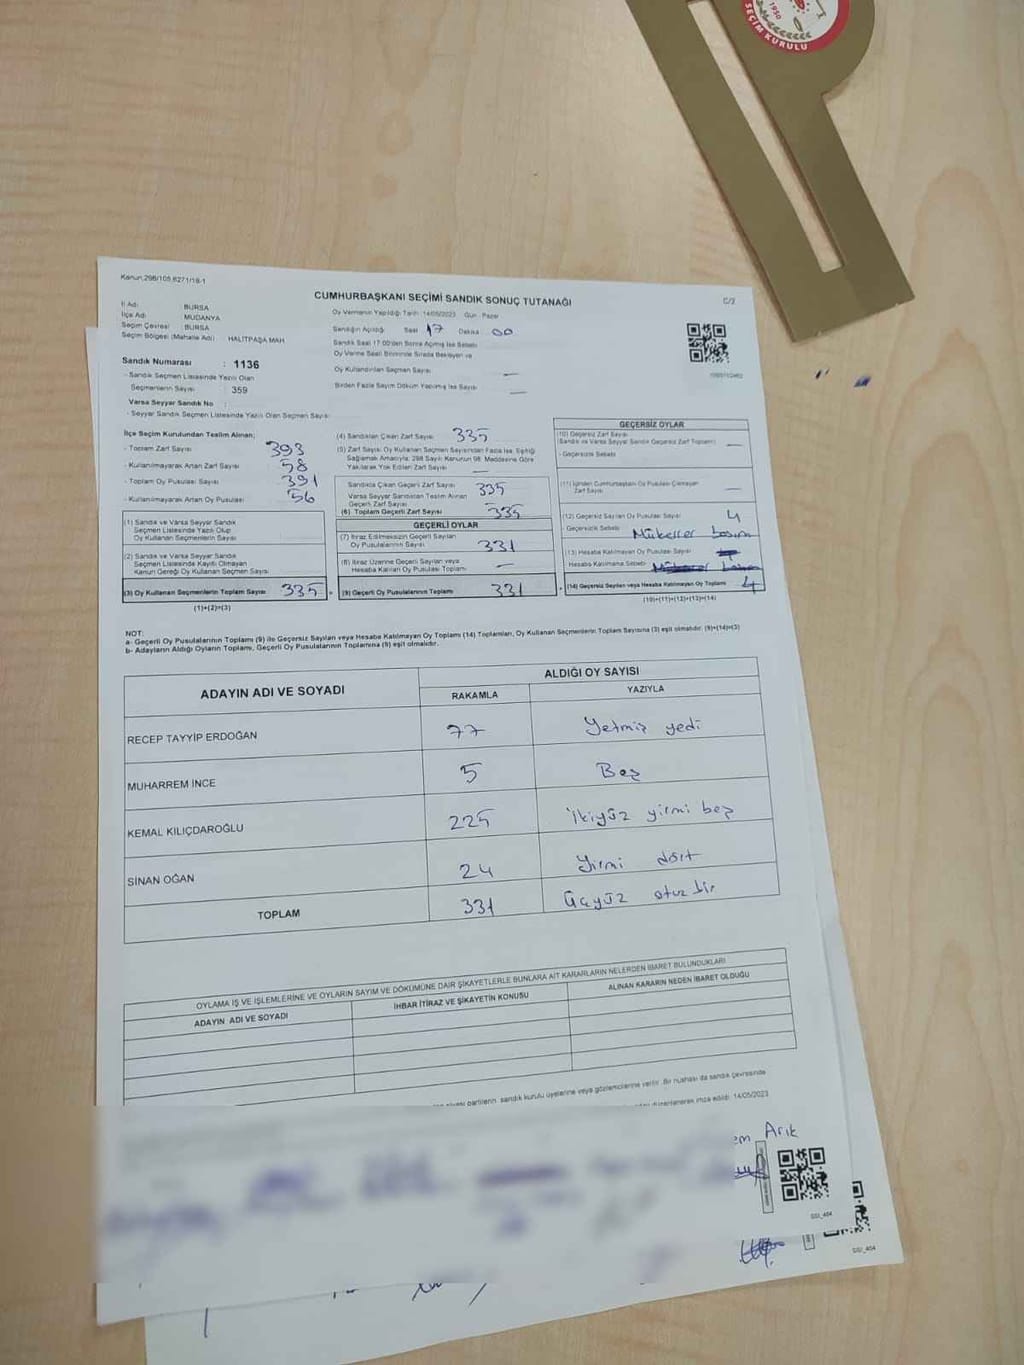 1950
SEÇİM KURULU
Kanun;298/105,6271/18-1
CUMHURBAŞKANI SEÇİMİ SANDIK SONUÇ TUTANAĞI
C/2
İl Adı BURSA
İlçe Adı MUDANYA
Seçim Çevresi BURSA
Seçim Bölgesi (Mahalle Adı) HALITPAŞA MAH
Oy Vermenin Yapıldığı Tarih :14/05/2023 Gün : Pazar
Sandığın Açıldığı Saat 17 Dakika 00
Sandık Saat 17:00'den Sonra Açılmış İse Sebebi
Oy Verme Saati Bitiminde Sırada Bekleyen ve
Oy Kullandırılan Seçmen Sayısı —
Birden Fazla Sayım Döküm Yapılmış İse Sayısı —
Sandık Numarası : 1136
- Sandık Seçmen Listesinde Yazılı Olan
Seçmenlerin Sayısı : 359
Varsa Seyyar Sandık No :
- Seyyar Sandık Seçmen Listesinde Yazılı Olan Seçmen Sayısı
İlçe Seçim Kurulundan Teslim Alınan;
- Toplam Zarf Sayısı 393
- Kullanılmayarak Artan Zarf Sayısı 58
- Toplam Oy Pusulası Sayısı 391
- Kullanılmayarak Artan Oy Pusulası 56
(1) Sandık ve Varsa Seyyar Sandık
Seçmen Listesinde Yazılı Olup
Oy Kullanan Seçmenlerin Sayısı
(2) Sandık ve Varsa Seyyar Sandık
Seçmen Listesinde Kayıtlı Olmayan
Kanun Gereği Oy Kullanan Seçmen Sayısı
(3) Oy Kullanan Seçmenlerin Toplam Sayısı 335
(1)+(2)=(3)
(4) Sandıktan Çıkan Zarf Sayısı 335
(5) Zarf Sayısı Oy Kullanan Seçmen Sayısından Fazla İse, Eşitliği
Sağlamak Amacıyla, 298 Sayılı Kanunun 98. Maddesine Göre
Yakılarak Yok Edilen Zarf Sayısı —
Sandıkta Çıkan Geçerli Zarf Sayısı 335
Varsa Seyyar Sandıktan Teslim Alınan
Geçerli Zarf Sayısı
(6) Toplam Geçerli Zarf Sayısı 335
GEÇERLİ OYLAR
(7) İtiraz Edilmeksizin Geçerli Sayılan
Oy Pusulalarının Sayısı 331
(8) İtiraz Üzerine Geçerli Sayılan veya
Hesaba Katılan Oy Pusulası Toplamı —
(9) Geçerli Oy Pusulalarının Toplamı 331
GEÇERSİZ OYLAR
(10) Geçersiz Zarf Sayısı
(Sandık ve Varsa Seyyar Sandık Geçersiz Zarf Toplamı) —
- Geçersizlik Sebebi
(11) İçinden Cumhurbaşkanı Oy Pusulası Çıkmayan
Zarf Sayısı —
(12) Geçersiz Sayılan Oy Pusulası Sayısı 4
Geçersizlik Sebebi Mükerrer basım
(13) Hesaba Katılmayan Oy Pusulası Sayısı
Hesaba Katılmama Sebebi
(14) Geçersiz Sayılan veya Hesaba Katılmayan Oy Toplamı 4
(10)+(11)+(12)+(13)=(14)
NOT:
a- Geçerli Oy Pusulalarının Toplamı (9) ile Geçersiz Sayılan veya Hesaba Katılmayan Oy Toplamı (14) Toplamları, Oy Kullanan Seçmenlerin Toplam Sayısına (3) eşit olmalıdır. (9)+(14)=(3)
b- Adayların Aldığı Oyların Toplamı, Geçerli Oy Pusulalarının Toplamına (9) eşit olmalıdır.
ADAYIN ADI VE SOYADI ALDIĞI OY SAYISI
RAKAMLA YAZIYLA
RECEP TAYYİP ERDOĞAN 77 Yetmiş yedi
MUHARREM İNCE 5 Beş
KEMAL KILIÇDAROĞLU 225 İkiyüz yirmi beş
SİNAN OĞAN 24 Yirmi dört
TOPLAM 331 Üçyüz otuz bir
OYLAMA İŞ VE İŞLEMLERİNE VE OYLARIN SAYIM VE DÖKÜMÜNE DAİR ŞİKAYETLERLE BUNLARA AİT KARARLARIN NELERDEN İBARET BULUNDUKLARI
ADAYIN ADI VE SOYADI İHBAR İTİRAZ VE ŞİKAYETİN KONUSU ALINAN KARARIN NEDEN İBARET OLDUĞU
partilerin sandık kurulu üyelerine veya gözlemcilerine verilir. Bir nüshası da sandık çevresinde
düzenlenerek imza edildi. 14/05/2023
em Arık
GSI_404
GSI_404